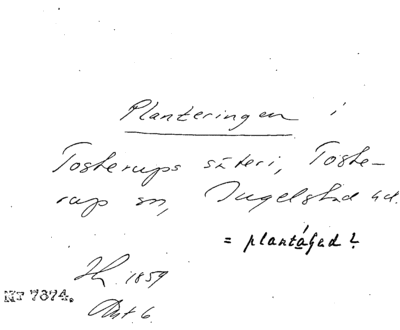 Planteringen i
Tosterups säteri, Toste-
rup sn, Ingelstad hd.
= plantåʃad?
Hk 1859
Akt 6
NT 7374.